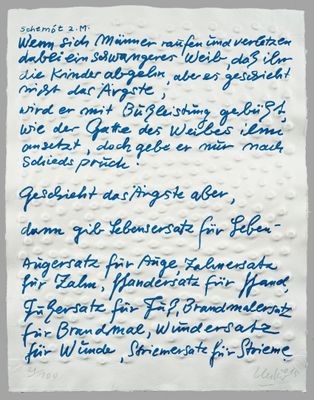 Schemót 2. M.
Wenn sich Männer raufen und verletzen
dabei ein schwangeres Weib, daß ihr
die Kinder abgehn, aber es geschieht
nicht das Ärgste,
wird er mit Bußleistung gebüßt,
wie der Gatte des Weibes ihm
ansetzt, doch gebe er nur nach
Schiedspruch.
Geschieht das Ärgste aber,
dann gib Lebensersatz für Leben-
Augersatz für Auge, Zahnersatz
für Zahn, Handersatz für Hand,
Fußersatz für Fuß, Brandmalersatz
für Brandmal, Wundersatz
für Wunde, Striemersatz für Strieme
/100